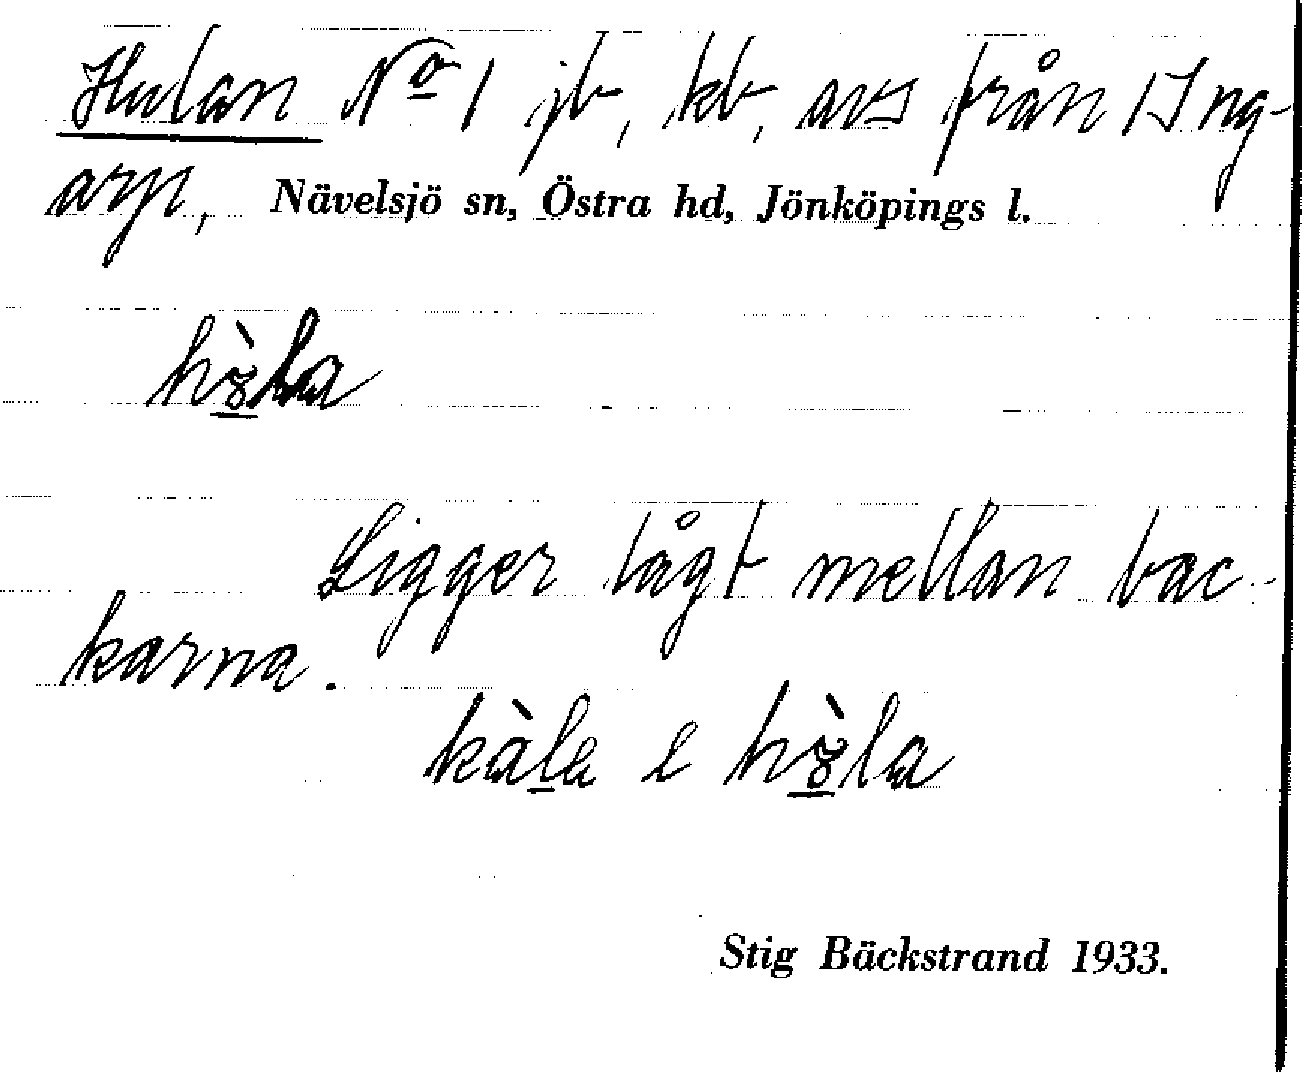 Hulan No 1 jb, kb, avs från 1 Ing-
arp, Nävelsjö sn, Östra hd, Jönköpings l.
hò̱la
Ligger lågt mellan bac-
karna.
kàḻa e hò̱la
Stig Bäckstrand 1933.